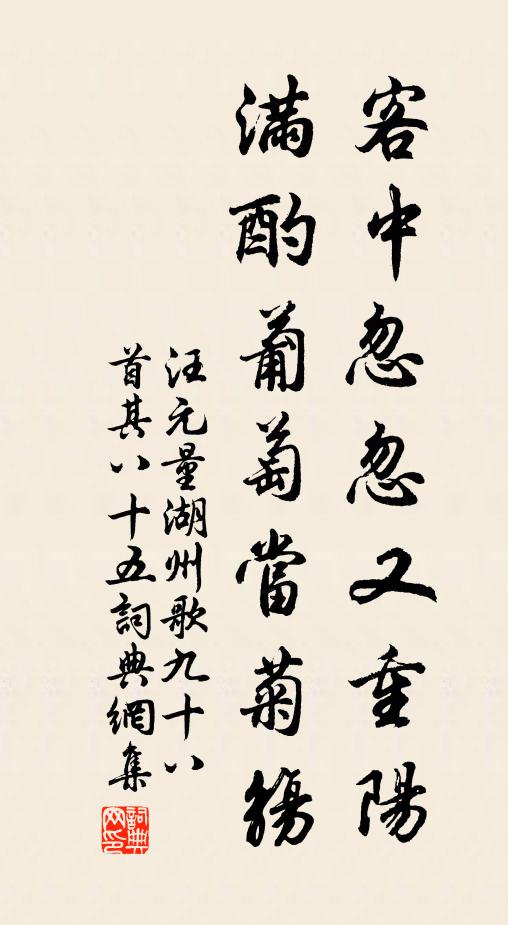 客中忽忽又重陽
滿酌葡萄當菊觴
汪元量湖州歌九十八
首其八十五詞典網集
詞典
网印